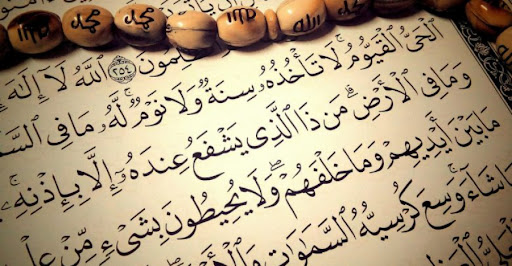 الله محمد محمد الله الله محمد
لِمُونَ ٢٥٤ ٱللَّهُ لَآ إِلَٰهَ
ٱلْحَىُّ ٱلْقَيُّومُ ۚ لَا تَأْخُذُهُۥ سِنَةٌ وَلَا نَوْمٌ ۚ لَّهُۥ مَا فِى ٱلسَّمَ
وَمَا فِى ٱلْأَرْضِ ۗ مَن ذَا ٱلَّذِى يَشْفَعُ عِندَهُۥٓ إِلَّا بِإِذْنِهِۦ ۚ
مَا بَيْنَ أَيْدِيهِمْ وَمَا خَلْفَهُمْ ۖ وَلَا يُحِيطُونَ بِشَىْءٍ مِّنْ عِلْ
شَآءَ ۚ وَسِعَ كُرْسِيُّهُ ٱلسَّمَٰوَٰتِ وَٱلْأَرْ